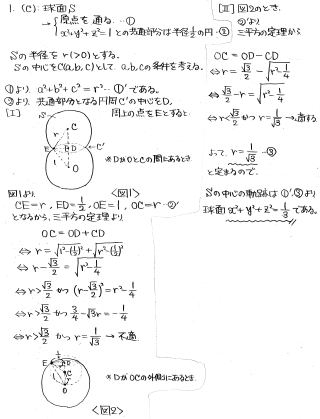 1. (C): 球面S
→ { 原点を通る…①
x²+y²+z²=1 との共通部分は半径½の円…②
Sの半径を r(>0)とする。
Sの中心をC(a,b,c)として a,b,cの条件を考える。
①より a²+b²+c²=r²…①'である。
②より 共通部分となる円周C'の中心をD,
[I] 周上の点をEとすると
S
C
r
E
D
C'
1
O
※DがOとCの間にあるとき.
図1より <図1>
CE=r, ED=½, OE=1, OC=r…②'
となるから、三平方の定理より
OC=OD+CD
⇔ r=√(1²-(½)²)+√(r²-(½)²)
⇔ r-√3/2=√(r²-¼)
⇔ r>√3/2 かつ (r-√3/2)²=r²-¼
⇔ r>√3/2 かつ ¾-√3r=-¼
⇔ r>√3/2 かつ r=1/√3 → 不適
½
E
D
C
r
1
O
※DがOCの外側にあるとき.
<図2>
[II] 図2のとき.
②'より
三平方の定理から
OC=OD-CD
⇔ r=√3/2-√(r²-¼)
⇔ √3/2-r=√(r²-¼)
⇔ r<√3/2 かつ r=1/√3 → 適する
よって r=1/√3 …③
と定まるので
Sの中心の軌跡は①',③より
球面 x²+y²+z²=⅓ である。